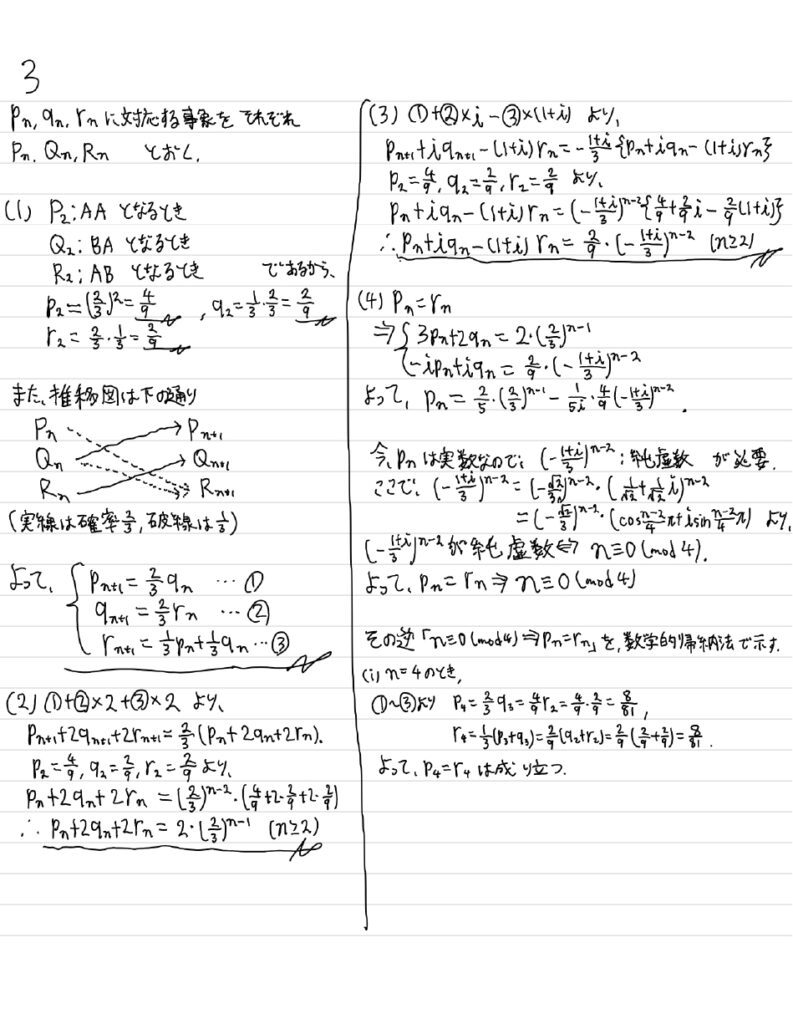 3
Pn, qn, rn に対応する事象をそれぞれ
Pn, Qn, Rn とおく.
(1) P₂; AA となるとき
Q₂; BA となるとき
R₂; AB となるとき であるから、
p₂ = (2/3)² = 4/9 , q₂ = 1/3・2/3 = 2/9
r₂ = 2/3・1/3 = 2/9
また、推移図は下の通り
Pn → Pn+1
Qn → Qn+1
Rn → Rn+1
(実線は確率2/3, 破線は1/3)
よって、{ pn+1 = 2/3 qn … ①
qn+1 = 2/3 rn … ②
rn+1 = 1/3 pn + 1/3 qn … ③
(2) ①+②×2+③×2 より、
pn+1+2qn+1+2rn+1 = 2/3(pn+2qn+2rn).
p₂=4/9, q₂=2/9, r₂=2/9 より、
pn+2qn+2rn = (2/3)^(n-2)・(4/9+2・2/9+2・2/9)
∴ pn+2qn+2rn = 2・(2/3)^(n-1) (n≧2)
(3) ①+②×i-③×(1+i) より、
pn+1+iqn+1-(1+i)rn = -(1+i)/3 {pn+iqn-(1+i)rn}
p₂=4/9, q₂=2/9, r₂=2/9 より、
pn+iqn-(1+i)rn = (-(1+i)/3)^(n-2) {4/9+2/9 i-2/9(1+i)}
∴ pn+iqn-(1+i)rn = 2/9・(-(1+i)/3)^(n-2) (n≧2)
(4) pn=rn
⇒ { 3pn+2qn = 2・(2/3)^(n-1)
-ipn+iqn = 2/9・(-(1+i)/3)^(n-2)
よって、 pn = 2/5・(2/3)^(n-1) - 1/5i・4/9(-(1+i)/3)^(n-2) .
今、pnは実数なので、(-(1+i)/3)^(n-2) ; 純虚数 が必要.
ここで、(-(1+i)/3)^(n-2) = (-√2/3)^(n-2)・(1/√2+1/√2 i)^(n-2)
= (-√2/3)^(n-2)・(cos (n-2)/4 π+isin (n-2)/4 π) より、
(-(1+i)/3)^(n-2) が純虚数 ⇔ n≡0 (mod 4).
よって、pn=rn ⇒ n≡0 (mod 4)
その逆「n≡0 (mod 4) ⇒ pn=rn」を、数学的帰納法で示す.
(i) n=4のとき,
①~③より p₄=2/3 q₃=4/9 r₂=4/9・2/9=8/81,
r₄=1/3(p₃+q₃)=2/9(q₂+r₂)=2/9(2/9+2/9)=8/81.
よって、p₄=r₄は成り立つ.